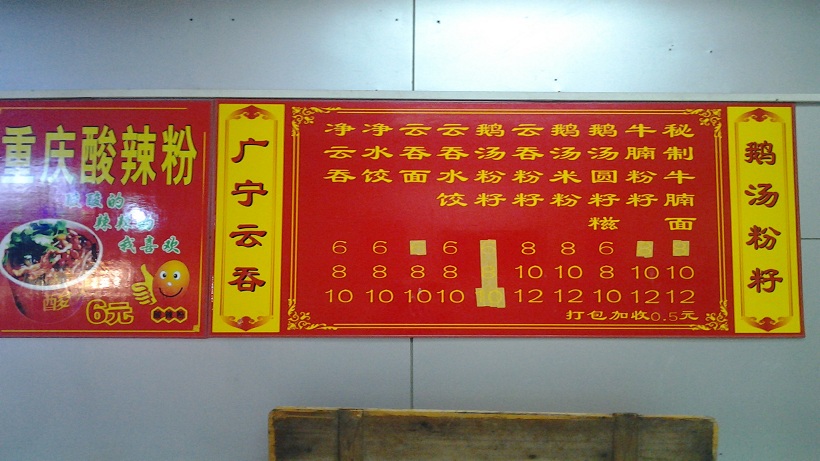 重庆酸辣粉
酸酸的
辣辣的
我喜欢
6元
广宁云吞
净云吞
净水饺
云吞面
云吞水饺
鹅汤粉籽
云吞粉籽
鹅汤米粉
鹅汤圆糍
牛腩粉籽
秘制牛腩面
6 6 6 8 8 6
8 8 8 8 10 10 8 10 10
10 10 10 10 12 12 10 12 12
打包加收0.5元
鹅汤粉籽